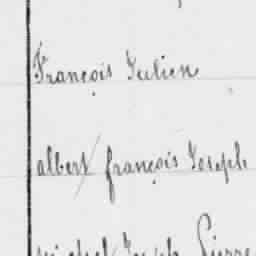 François Julien
albert françois Joseph
michel Joseph Pierre